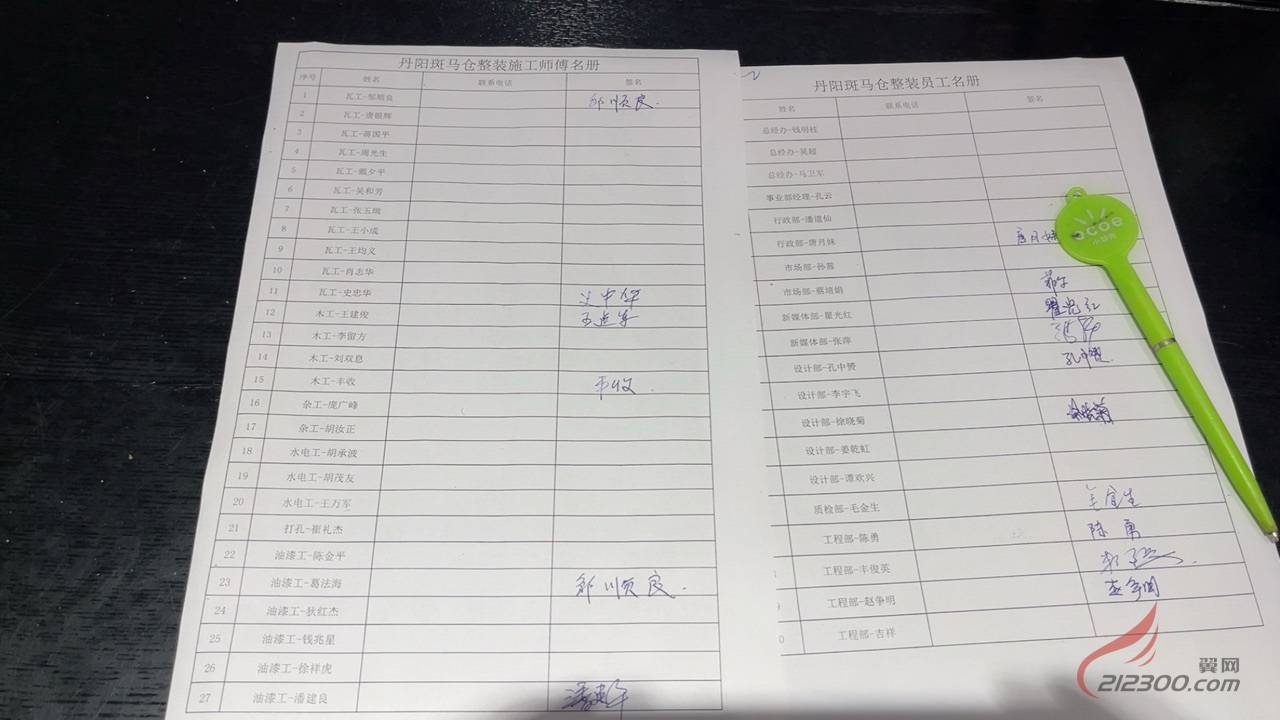 丹阳斑马仓整装施工师傅名册
序号 姓名 联系电话 签名
1 瓦工-邹顺良 邹顺良
2 瓦工-唐银辉
3 瓦工-蒋国平
4 瓦工-周光生
5 瓦工-戴夕平
6 瓦工-吴和芳
7 瓦工-张玉瑞
8 瓦工-王小成
9 瓦工-王均义
10 瓦工-肖志华
11 瓦工-史忠华 史中华
12 木工-王建俊
13 木工-李留方
14 木工-刘双息
15 木工-丰收 丰收
16 杂工-庞广峰
17 杂工-胡汝正
18 水电工-胡承波
19 水电工-胡茂友
20 水电工-王万军
21 打孔-崔礼杰
22 油漆工-陈金平
23 油漆工-葛法海 邹顺良
24 油漆工-狄红杰
25 油漆工-钱兆星
26 油漆工-徐祥虎
27 油漆工-潘建良
丹阳斑马仓整装员工名册
姓名 联系电话 签名
总经办-钱明桂
总经办-吴超
总经办-马卫军
事业部经理-孔云
行政部-潘道仙
行政部-唐月妹 唐月妹
市场部-孙茜
市场部-蔡培娟
新媒体部-瞿光红 瞿光红
新媒体部-张萍 张萍
设计部-孔中赟 孔中赟
设计部-李宇飞
设计部-徐晓菊 徐晓菊
设计部-姜乾虹
设计部-谭欢兴
质检部-毛金生
工程部-陈勇 陈勇
工程部-丰俊英
工程部-赵争明
0 工程部-吉祥
ocoe
翼网
212300.com